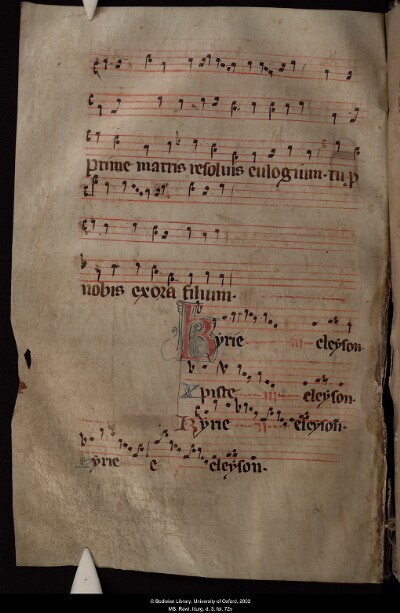 prime matris resoluis eulogium. tu p
nobis exora filium.
Kyrie iii eleyson.
Xpiste iii eleyson.
Kyrie ii eleyson.
Kyrie e eleyson.
© Bodleian Library, University of Oxford, 2002
MS. Rawl. liturg. d. 3, fol. 72v